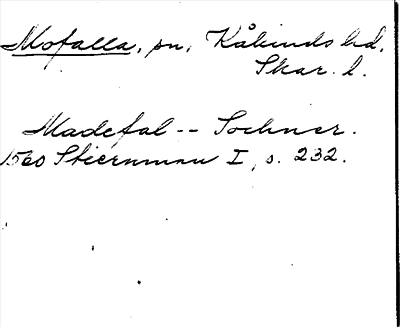 Mofalla, sn, Kåkinds hd,
Skar. l.
Madefal -- Sochner.
1560 Stiernman I, s. 232.